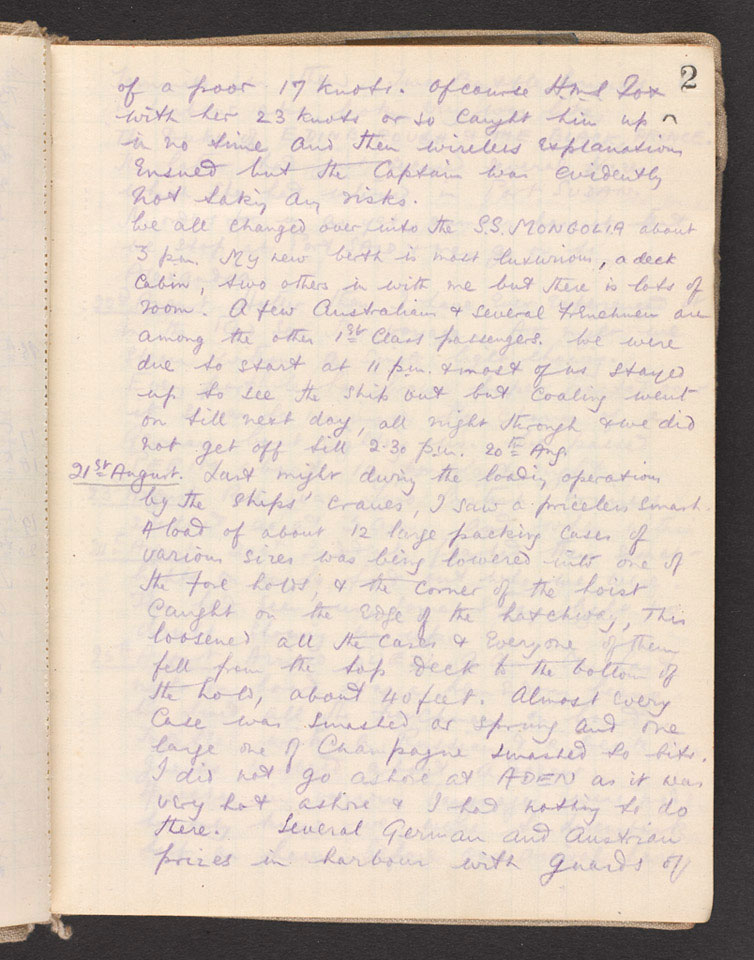 2
of a poor 17 knots. Ofcourse HMS Fox
with her 23 knots or so caught him up
in no time and then wireless explanations
Ensued but the Captain was evidently
not taking any risks.
We all changed over into the S.S. MONGOLIA about
3 pm. My new berth is most luxurious, a deck
cabin, two others in with me but there is lots of
room. A few Australians & several Frenchmen are
among the other 1st Class passengers. We were
due to start at 11 p.m. & most of us stayed
up to see the ship out but coaling went
on till next day, all night through & we did
not get off till 2.30 p.m. 20th Aug.
21st August. Last night during the loading operations
by the ships' cranes, I saw a priceless smash.
A load of about 12 large packing cases of
various sizes was being lowered into one of
the fore holds, & the corner of the hoist
caught on the Edge of the hatchway, This
loosened all the cases & Everyone of them
fell from the top deck to the bottom of
the hold, about 40 feet. Almost every
case was smashed or sprung and one
large one of Champagne smashed to bits.
I did not go ashore at ADEN as it was
very hot ashore & I had nothing to do
there. Several German and Austrian
prizes in harbour with guards of